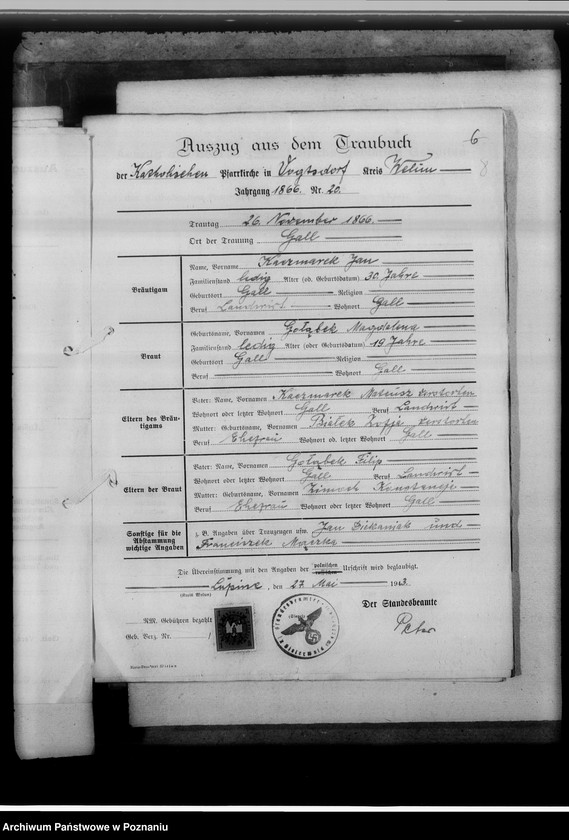 6
Auszug aus dem Traubuch
der Katholischen Pfarrkirche in Vogtsdorf Kreis Welun
Jahrgang 1866. Nr. 20.
Trautag 26. November 1866.
Ort der Trauung Gall
Bräutigam
Name, Vorname Kaczmarek Jan
Familienstand ledig Alter (od. Geburtsdatum) 30 Jahre
Geburtsort Gall Religion
Beruf Landwirt Wohnort Gall
Braut
Geburtsname, Vornamen Gołąbek Magdalena
Familienstand ledig Alter (oder Geburtsdatum) 19 Jahre
Geburtsort Gall Religion
Beruf Wohnort Gall
Eltern des Bräutigams
Vater: Name, Vornamen Kaczmarek Mateusz verstorben
Wohnort oder letzter Wohnort Gall Beruf Landwirt
Mutter: Geburtsname, Vornamen Białek Zofje verstorben
Beruf Ehefrau Wohnort od. letzter Wohnort Gall
Eltern der Braut
Vater: Name, Vornamen Gołąbek Filip
Wohnort oder letzter Wohnort Gall Beruf Landwirt
Mutter: Geburtsname, Vornamen Konstancje
Beruf Ehefrau Wohnort oder letzter Wohnort Gall
Sonstige für die Abstammung wichtige Angaben
z. B. Angaben über Trauzeugen usw. Jan und
Franciszek
Die Übereinstimmung mit den Angaben der polnischen Urschrift wird beglaubigt.
den 27. Mai 1943.
Der Standesbeamte
RM. Gebühren bezahlt
Geb. Verz. Nr. /
Peter
Archiwum Państwowe w Poznaniu